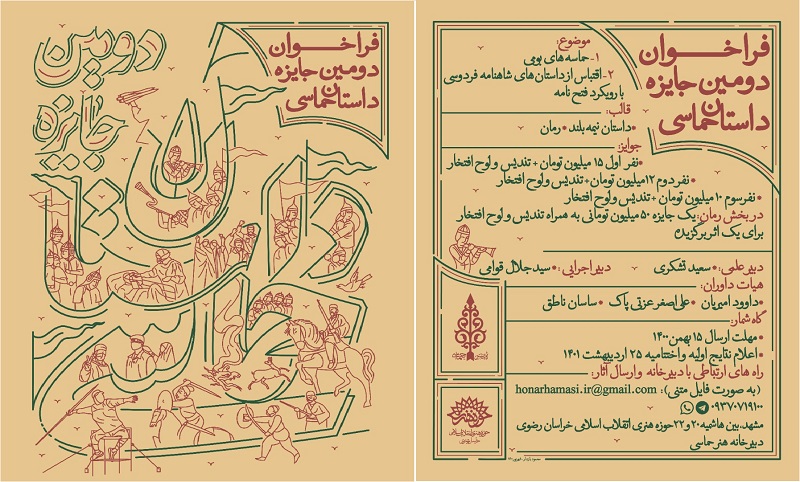 دومین
جایزه
داستان
حماسی
فراخوان
دومین جایزه
داستان حماسی
فراخوان
دومین جایزه
داستان حماسی
موضوع:
۱- حماسه های بومی
۲- اقتباس از داستان های شاهنامه فردوسی
با رویکرد فتح نامه
قالب:
• داستان نیمه بلند • رمان
جوایز:
• نفر اول ۱۵ میلیون تومان + تندیس و لوح افتخار
• نفر دوم ۱۲ میلیون تومان + تندیس و لوح افتخار
• نفر سوم ۱۰ میلیون تومان + تندیس و لوح افتخار
در بخش رمان: یک جایزه ۵۰ میلیون تومانی به همراه تندیس و لوح افتخار
برای یک اثر برگزیده
دبیر علمی: • سعید تشکری دبیر اجرایی: • سید جلال قوامی
هیات داوران:
داوود امیریان • علی اصغر عزتی پاک • ساسان ناطق
گاه شمار:
• مهلت ارسال ۱۵ بهمن ۱۴۰۰
• اعلام نتایج اولیه و اختتامیه ۲۵ اردیبهشت ۱۴۰۱
راه های ارتباطی با دبیرخانه و ارسال آثار:
(به صورت فایل متنی): honarhamasi.ir@gmail.com
۰۹۳۷۰۷۱۹۱۰۰
مشهد، بین هاشمیه ۲۰ و ۲۲ حوزه هنری انقلاب اسلامی خراسان رضوی
دبیرخانه هنر حماسی